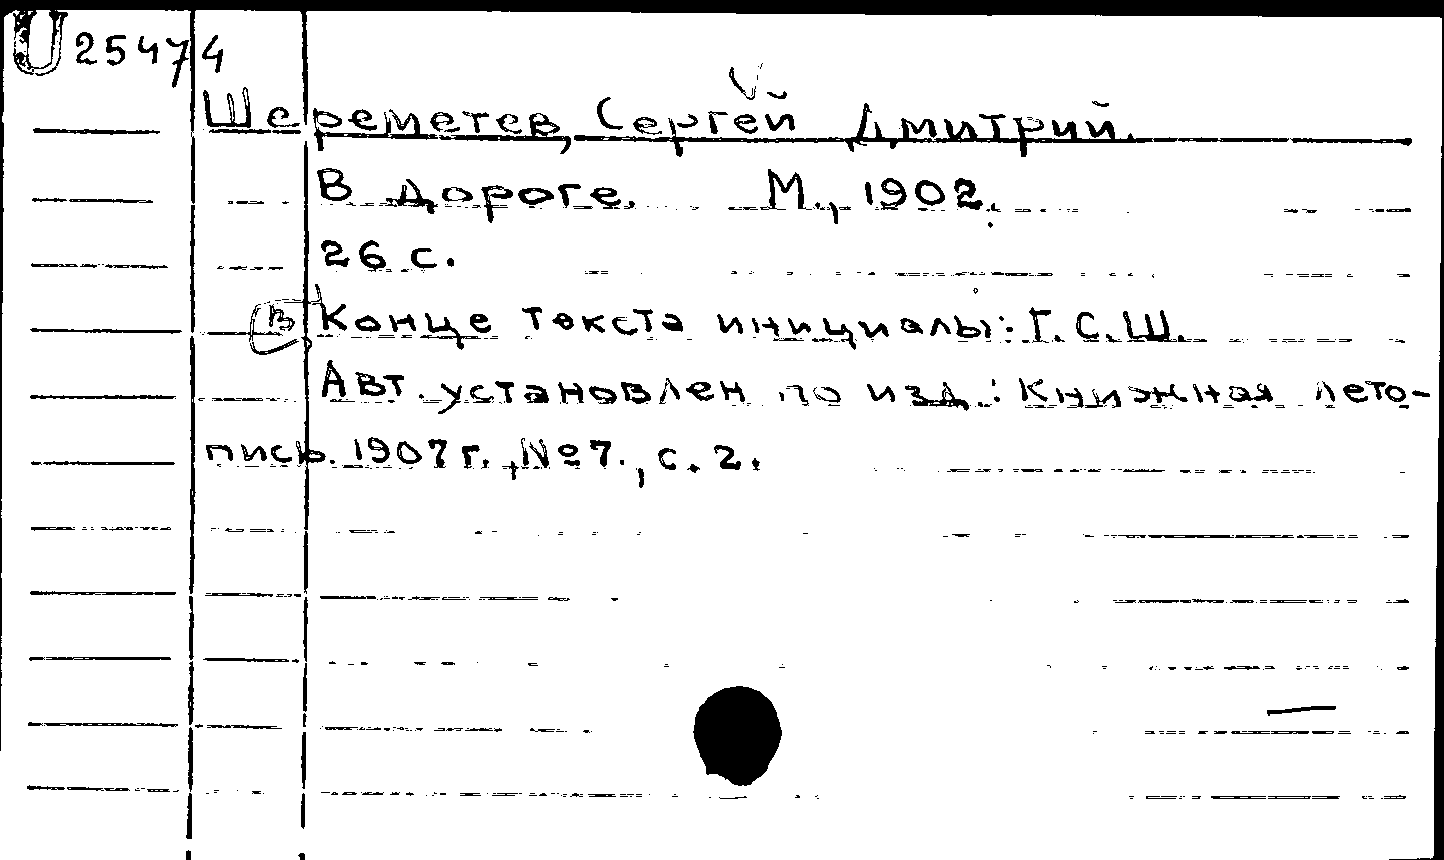 U 25474
Шереметев, Сергей Дмитрий.
В дороге. М., 1902.
26 с.
В конце текста инициалы: Г.С.Ш.
Авт. установлен по изд.: Книжная лето-
пись. 1907 г., № 7., с. 2.